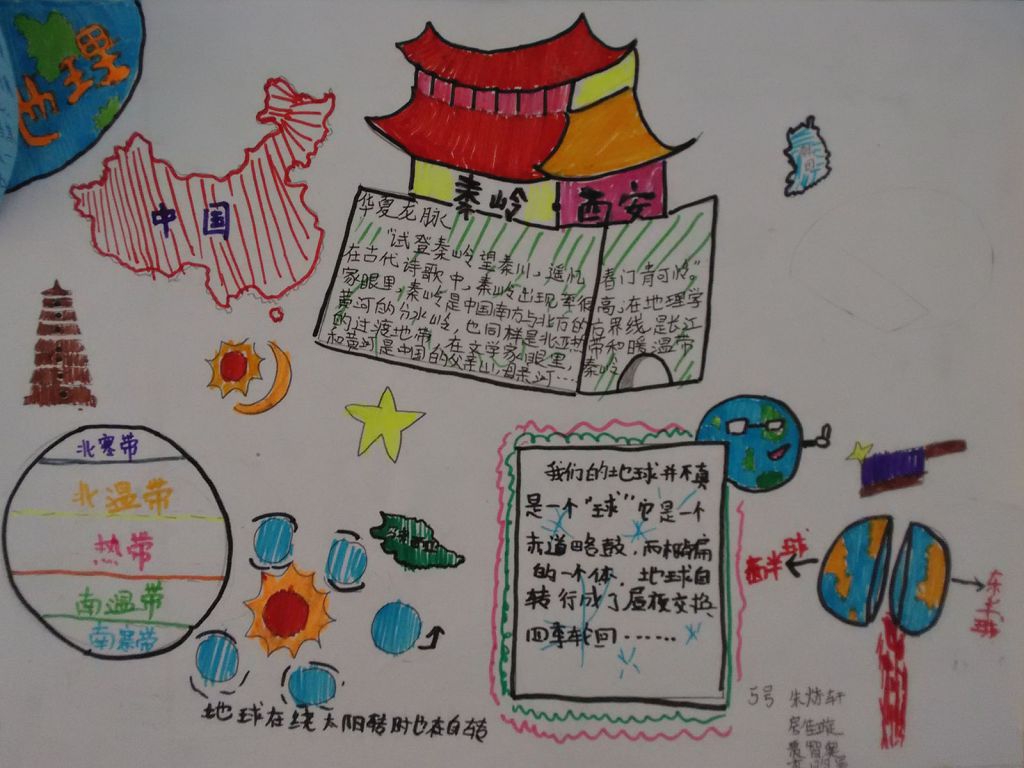 地理
中国
秦岭 西安
华夏龙脉
"试登秦岭望秦川,遥忆 春门青可怜"
在古代诗歌中,秦岭出现率很高;在地理学
家眼里,秦岭是中国南方与北方的 界线,是长江
黄河的分水岭,也同样是北亚热带和暖温带
的过渡地带,在文学家眼里,秦岭
和黄河是中国的父亲山/母亲河……
北寒带
北温带
热带
南温带
南寒带
我们的地球并不真
是一个"球"它是一个
赤道略鼓,两极扁
的一个体,地球自
转行成了昼夜交换
四季轮回……
西半球
东半球
地球在绕太阳转时也在自转
5号 朱 轩